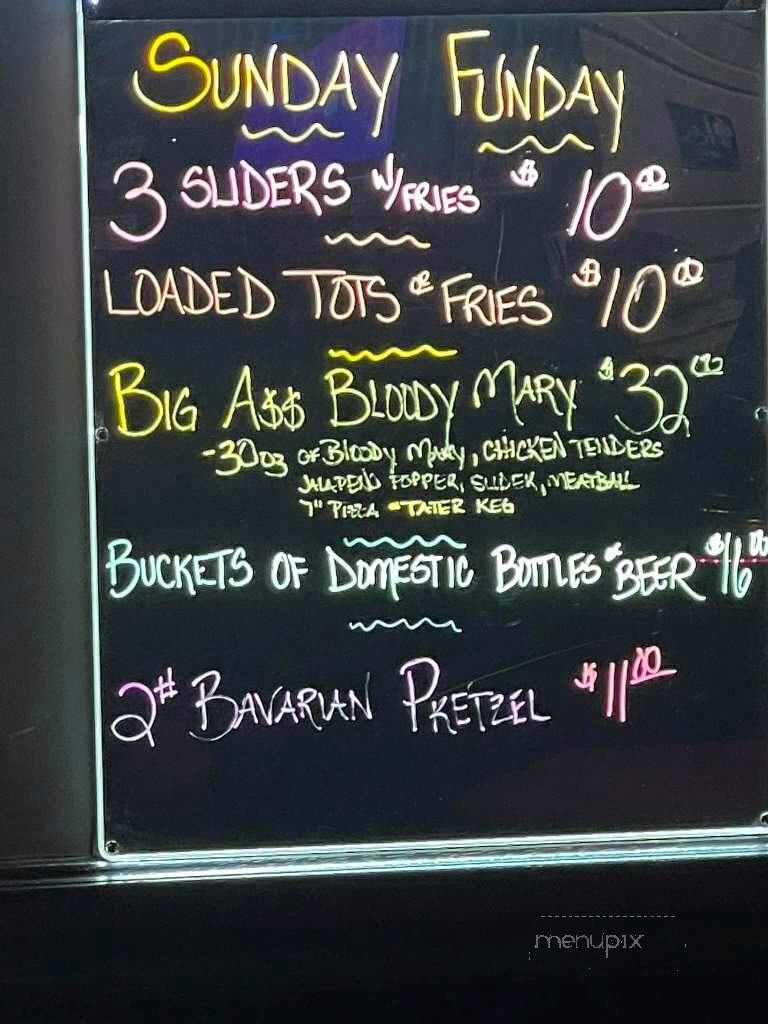 SUNDAY FUNDAY
3 SLIDERS W/FRIES $ 10.00
LOADED TOTS OR FRIES $10.00
BIG A$$ BLOODY MARY $32.00
-30oz OF BLOODY MARY, CHICKEN TENDERS
JALAPENO POPPER, SLIDER, MEATBALL
7" PIZZA TATER KEG
BUCKETS OF DOMESTIC BOTTLES OF BEER $16.00
2# BAVARIAN PRETZEL $11.00
menupix